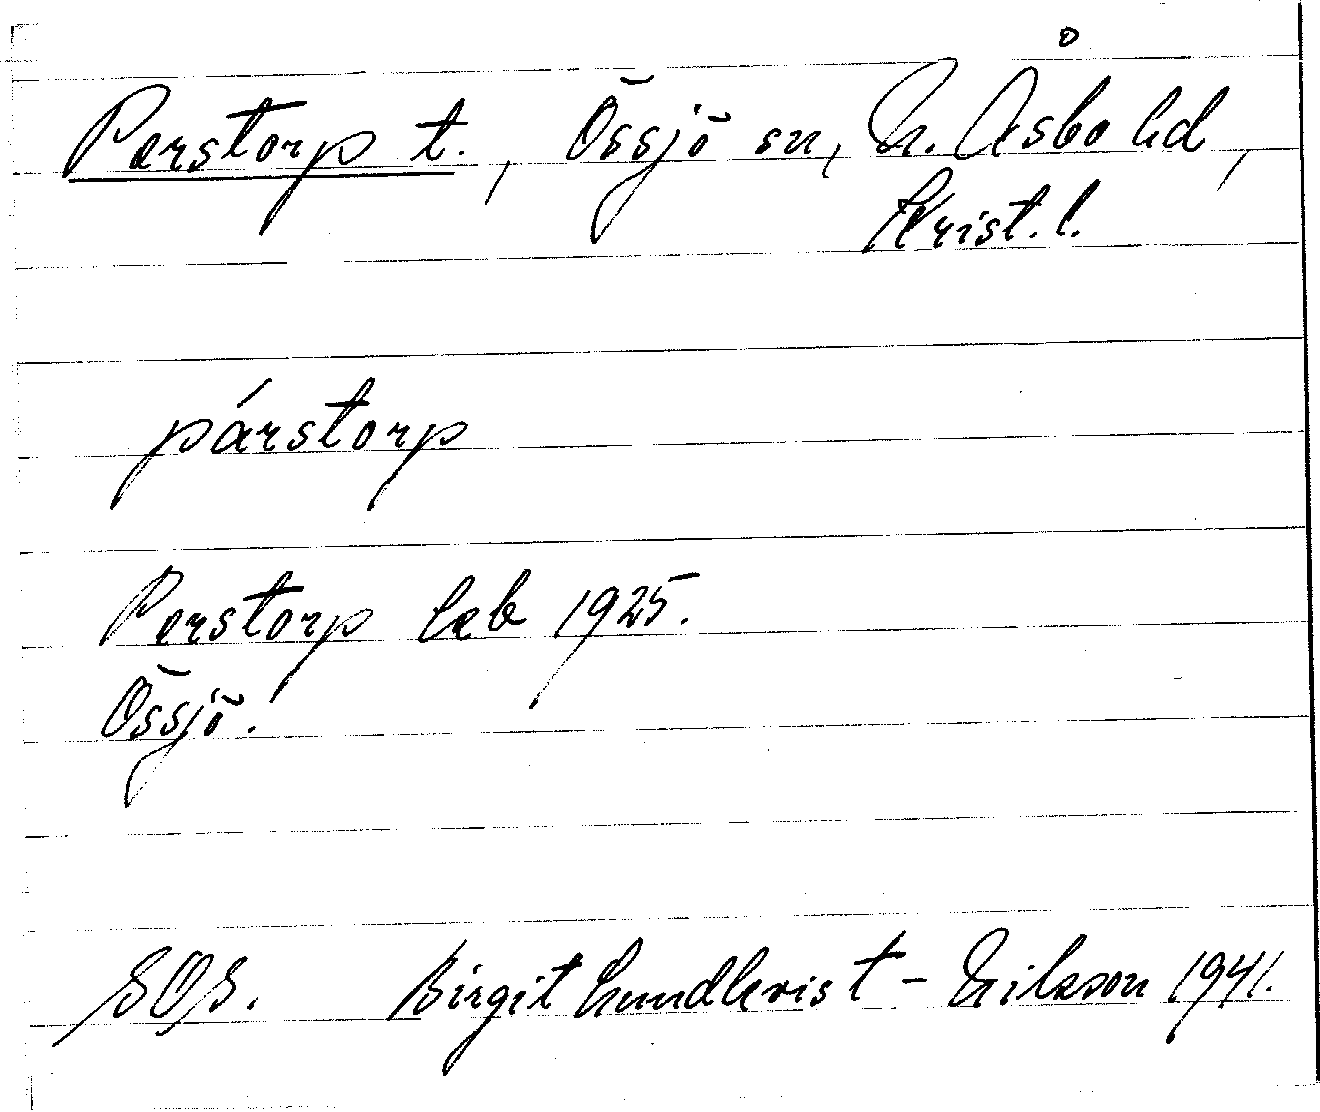 Perstorp t., Össjö sn, N. Åsbo hd,
Krist. l.
párstorp
Perstorp lab 1925.
Össjö.
SOS. Birgit Lundkvist - Nilsson 1941.